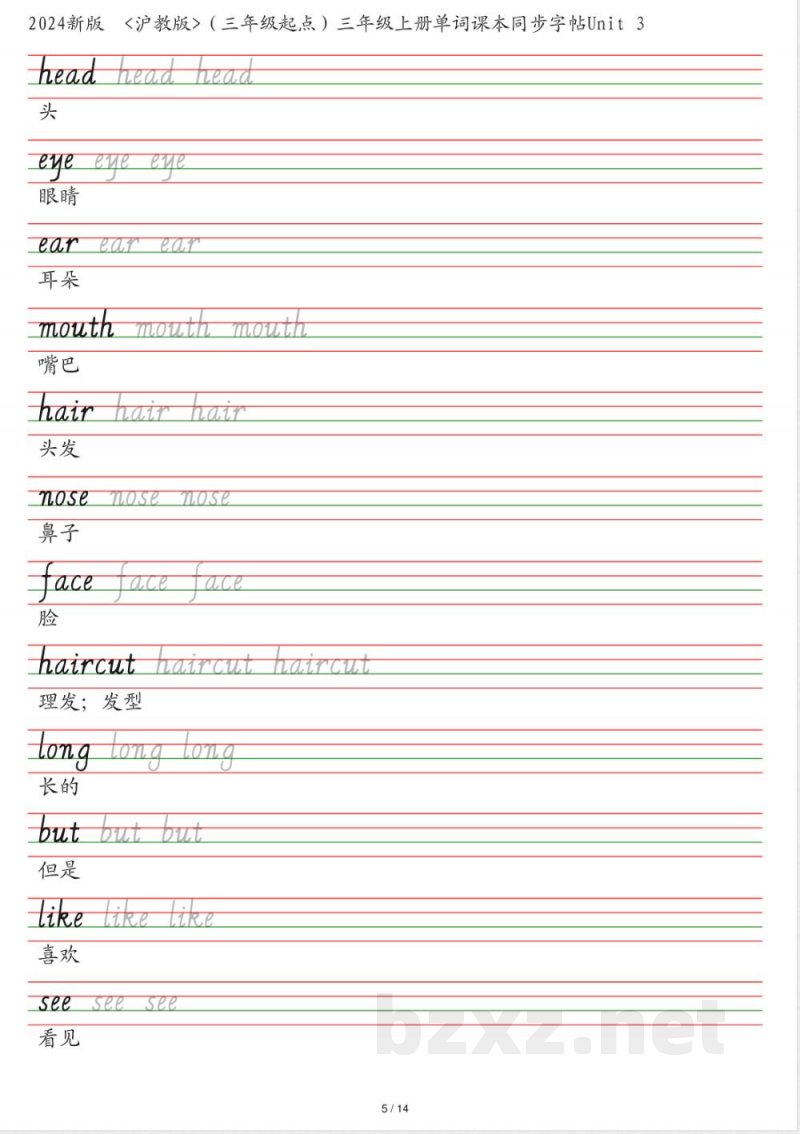 2024新版 <沪教版>(三年级起点)三年级上册单词课本同步字帖Unit 3
head head head
头
eye eye eye
眼睛
ear ear ear
耳朵
mouth mouth mouth
嘴巴
hair hair hair
头发
nose nose nose
鼻子
face face face
脸
haircut haircut haircut
理发; 发型
long long long
长的
but but but
但是
like like like
喜欢
see see see
看见
bzxz.net
5 / 14